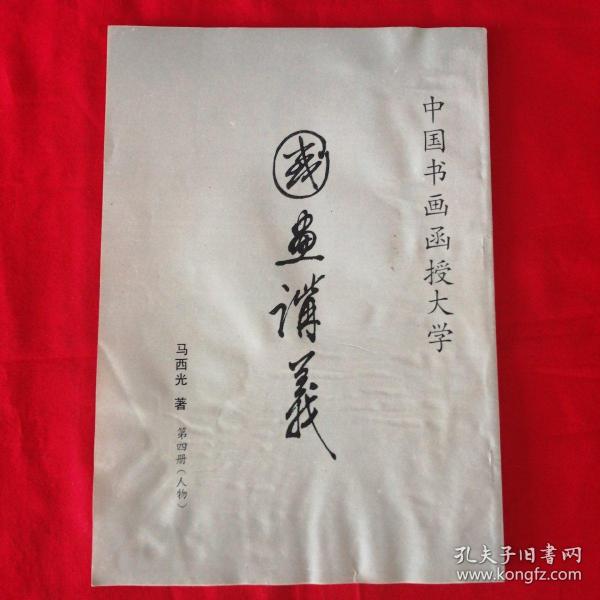 中国书画函授大学
國畫講義
马西光 著
第四册(人物)
孔夫子旧书网
www.kongfz.com